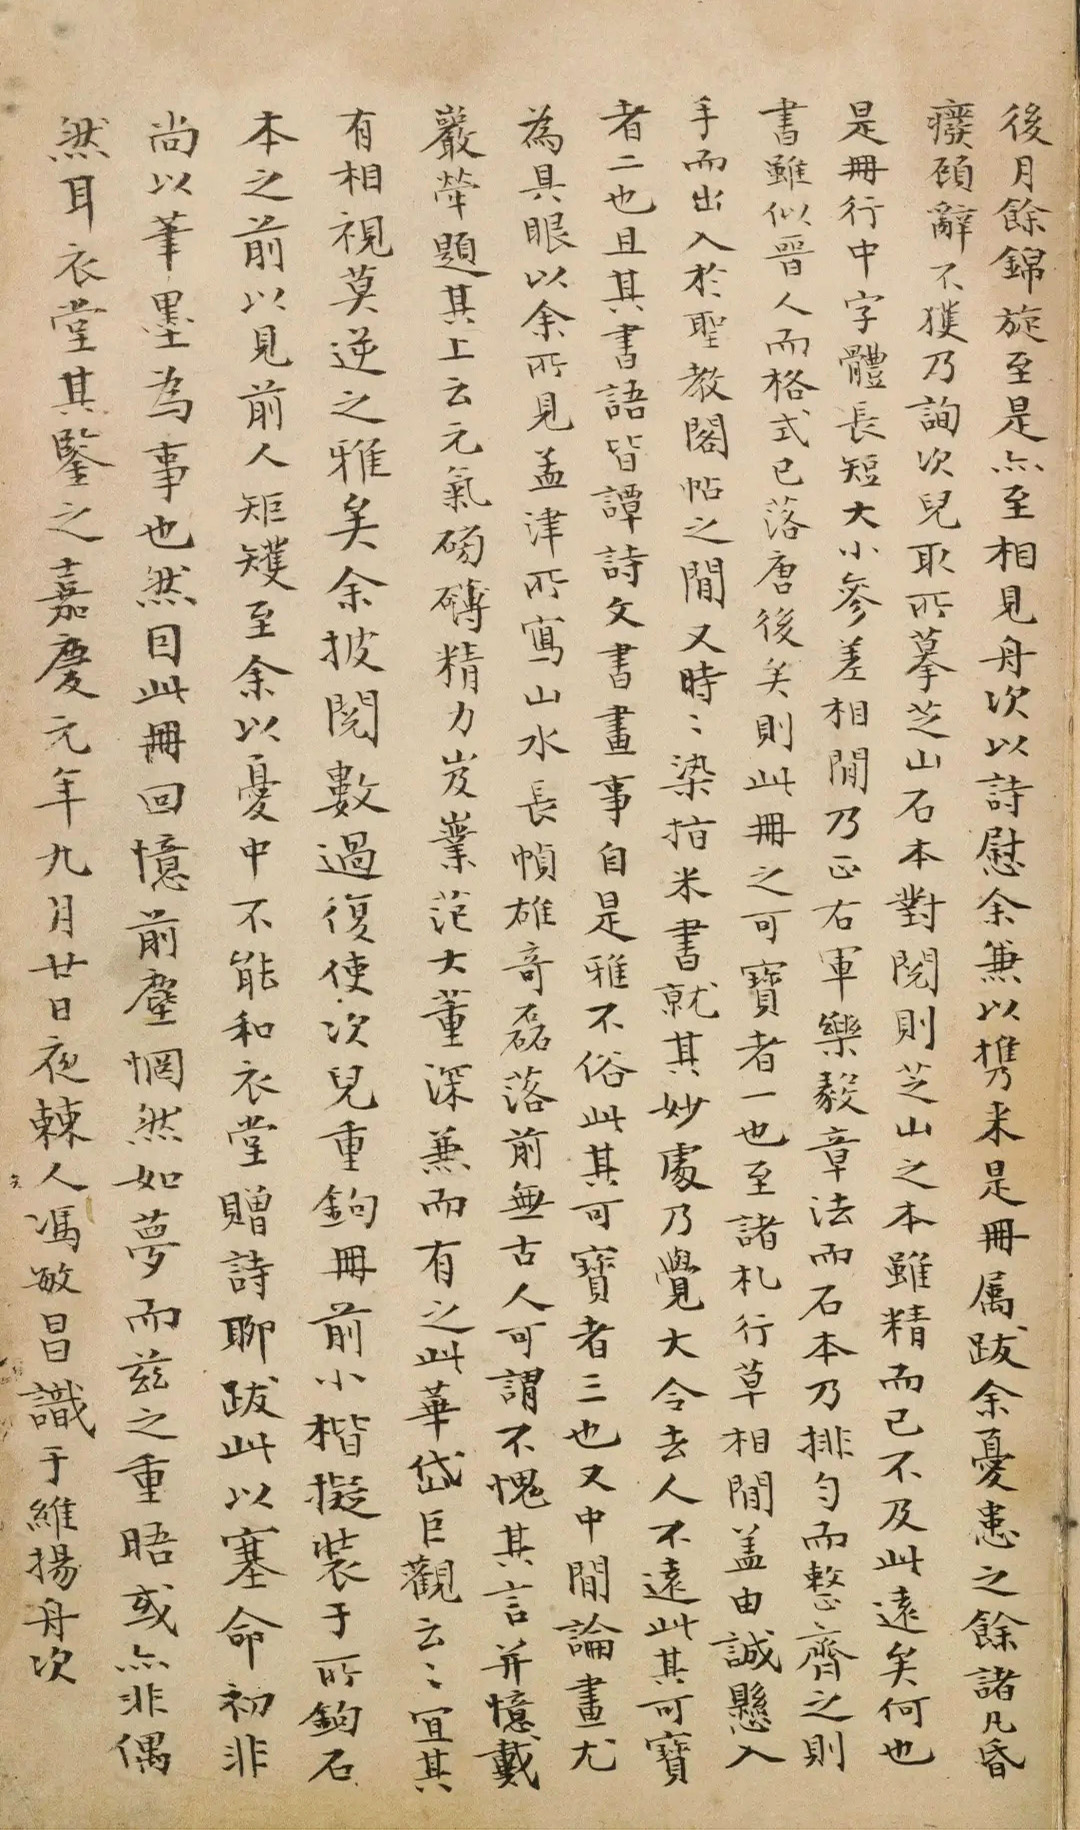 後月餘錦旋至是亦至相見舟次以詩慰余兼以携来是冊属跋余憂患之餘諸凡昏
癈顧辭不獲乃詢次兒取所摹芝山石本對閱則芝山之本雖精而已不及此遠矣何也
是冊行中字體長短大小參差相間乃正右軍樂毅章法而石本乃排勻而整齊之則
書雖似晋人而格式已落唐後矣則此冊之可寶者一也至諸札行草相間盖由誠懸入
手而出入於聖教閣帖之間又時〻染指米書就其妙處乃覺大令去人不遠此其可寶
者二也且其書語皆譚詩文書畫事自是雅不俗此其可寶者三也又中間論畫尤
為具眼以余所見孟津所寫山水長幀雄竒磊落前無古人可謂不愧其言并憶戴
巖犖題其上云元氣磅礴精力岌嶪范大董深兼而有之此華岱巨觀云〻宜其
有相視莫逆之雅矣余披閱數過復使次兒重鉤冊前小楷擬裝于所鉤石
本之前以見前人矩矱至余以憂中不能和衣堂贈詩聊跋此以塞命初非
尚以筆墨為事也然因此冊回憶前塵惘然如夢而兹之重晤或亦非偶
然耳衣堂其鑒之嘉慶元年九月廿日夜棘人馮敏昌識于維揚舟次